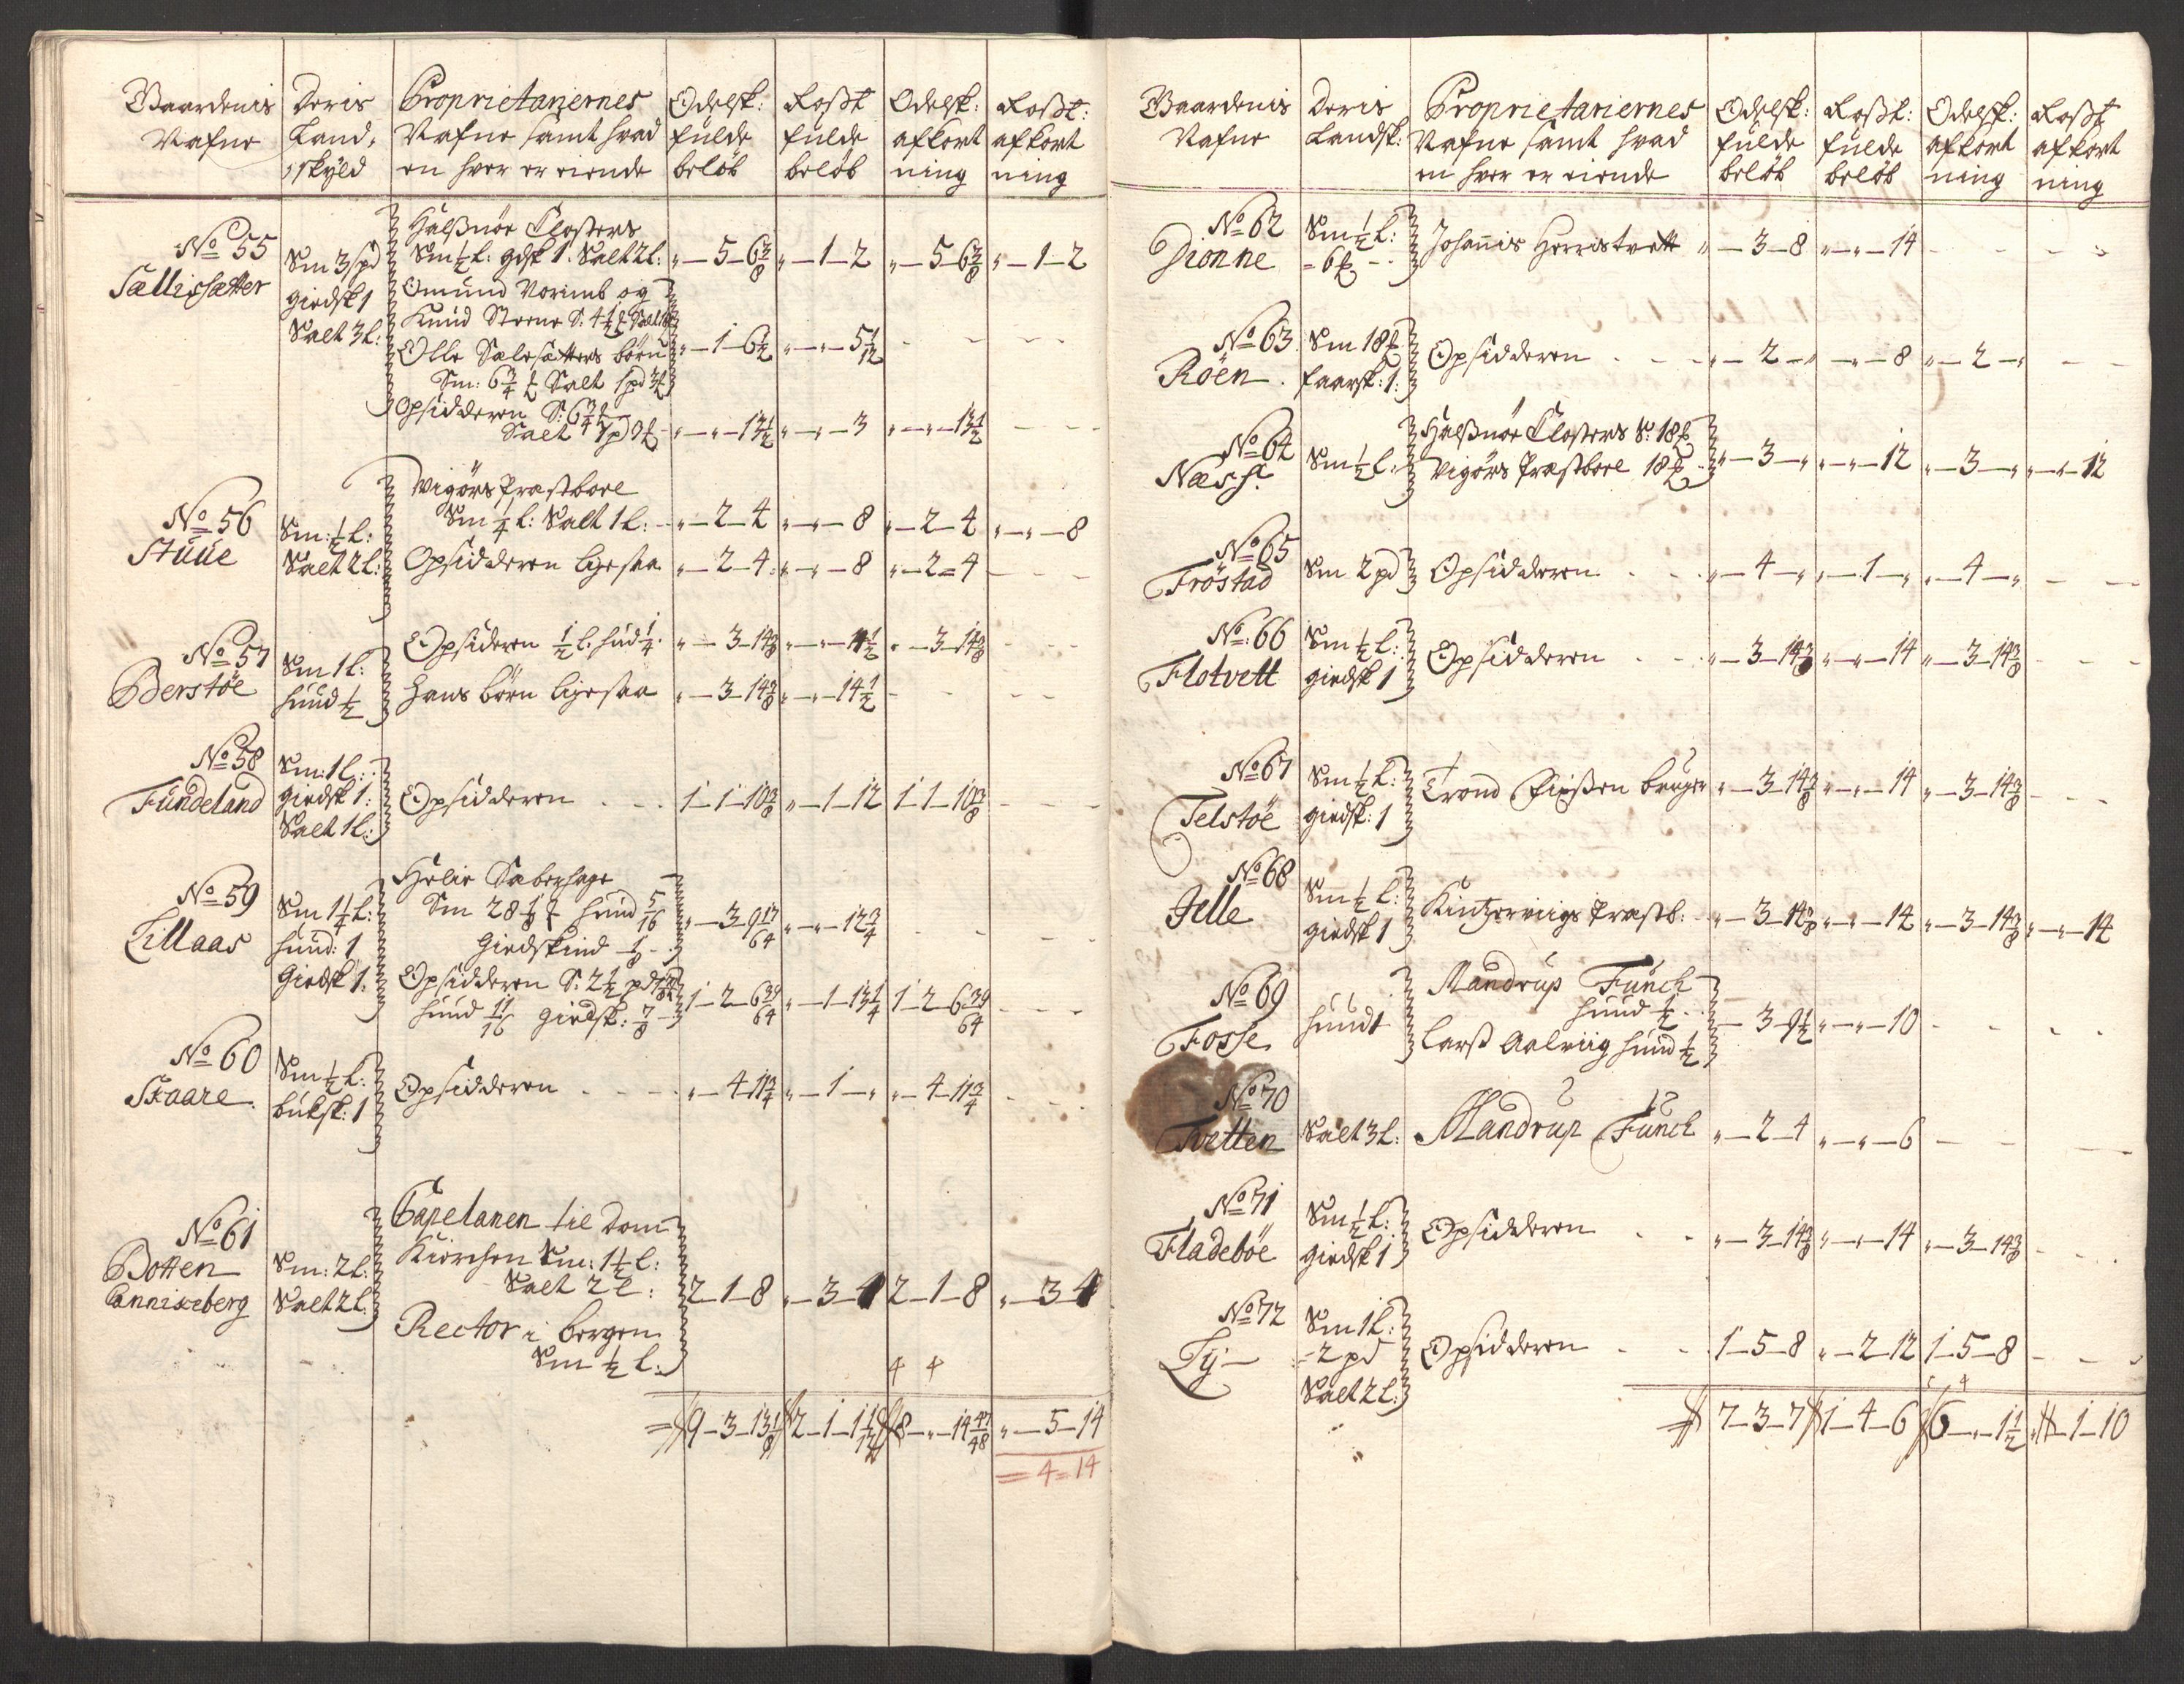 Gaardenis Nafne | Deris Land- skyld | Proprietariernes Nafne samt hvad en hver er eiende | Odelsk: fulde beløb | Roßt: fulde beløb | Odelsk: afkort ning | Roßt: afkort ning
No 55 Sællissætter | Sm 3 spd giedsk 1 Salt 3 l: | Halsnöe Closters
Sm ½ l: gdsk 1. Salt 2 l: | „ 5 - 6 3/8 | „ 1 - 2 | „ 5 - 6 3/8 | „ 1 - 2
Omund Norimb og
Knud Steene
Olle Salesætters börn | „ 1 - 6 ½ | „ „ 5 1/12
Sm: 6 ¾ Salt
Opsidderen S: 6 ¾
Salt | „ „ 13 ½ | „ „ 3 | „ „ 13 ½
No 56 Stuue | Sm: ½ l: Salt 2 l: | Vigörs Præstbole
Sm ¼ l: Salt 1 l: | „ 2 - 4 | „ „ 8 | „ 2 - 4 | „ „ 8
Opsidderen ligesaa | „ 2 - 4 | „ „ 8 | „ 2 - 4
No 57 Berstöe | Sm 1 l: hund ½ | Opsideren ½ l. hud ¼ | „ 3 - 14 3/8 | „ „ 14 ½ | „ 3 - 14 3/8
Hans börn ligesaa | „ 3 - 14 3/8 | „ „ 14 ½
No 58 Fundeland | Sm: 1 l: giedsk 1: Salt 1 l: | Opsidderen | 1 - 1 - 10 3/8 | „ 1 - 12 | 1 - 1 - 10 3/8
No 59 Lillaas | Sm 1 ¼ l: hund: 1 Giedsk 1: | Helie Saberhage
Sm 28 1/8 hund 5/16
Giedskind 1/8 | „ 3 - 9 17/64 | „ „ 12 ¾
Opsidderen S: 2 ½ pd
hund 11/16 giedsk: 7/8 | 1 - 2 - 6 39/64 | „ 1 - 13 ¼ | 1 - 2 - 6 39/64
No 60 Skaare | Sm ½ l: buksk: 1 | Opsidderen | „ 4 - 11 ¾ | „ 1 - „ | „ 4 - 11 ¾
No 61 Botten Canniceberg | Sm: 2 l: Salt 2 l: | Capelanen til Dom
Kierchen Sm: 1 ½ l:
Salt 2 l: | 2 - 1 - 8 | „ 3 - 4 | 2 - 1 - 8 | „ 3 - 4
Rector i bergen
Sm ½ l:
4 4
9 - 3 - 13 1/8 | 2 - 1 - 1 1/12 | 8 - „ - 14 47/48 | „ 5 - 14
= 4 = 14
Gaardenis Nafne | Deris Landsk: | Proprietariernes Nafne samt hvad en hver er eiende | Odelsk: fulde beløb | Roßt: fulde beløb | Odelsk: afkort ning | Roßt: afkort ning
No 62 Dionne | Sm ½ l: = 6 | Johannis Herristvett | „ 3 - 8 | „ „ 14
No 63 Röen | Sm 18 faarsk: 1: | Opsidderen | „ 2 - „ | „ „ 8 | „ 2 - „
No 64 Næss | Sm ½ l: | Halsnöe Closters S: 18
Vigörs Præstbole 18 | „ 3 - „ | „ „ 12 | „ 3 - „ | „ „ 12
No 65 Fröstad | Sm 2 pd | Opsidderen | „ 4 - „ | „ 1 - „ | „ 4 - „
No 66 Flotvett | Sm ½ l: giedsk 1 | Opsidderen | „ 3 - 14 3/8 | „ „ 14 | „ 3 - 14 3/8
No 67 Telstöe | Sm ½ l: giedsk: 1 | Trond bruger | „ 3 - 14 3/8 | „ „ 14 | „ 3 - 14 3/8
No 68 Jelle | Sm ½ l: giedsk 1 | Kintzerviigs Præstb: | „ 3 - 14 3/8 | „ „ 14 | „ 3 - 14 3/8 | „ „ 14
No 69 Fosse | hund 1 | Mandrup Funck
hund ½
Larß Aalviig hund ½ | 3 - 9 ½ | „ „ 10
No 70 Tvetten | Salt 3 l: | Mandrup Funck | „ 2 - 4 | „ „ 6
No 71 Fladeböe | Sm ½ l: giedsk 1 | Opsidderen | „ 3 - 14 3/8 | „ „ 14 | „ 3 - 14 3/8
No 72 Ly | Sm 1 l: = 2 pd Salt 2 l: | Opsidderen | 1 - 5 - 8 | „ 2 - 12 | 1 - 5 - 8
7 - 3 - 7 | 1 - 4 - 6 | 6 - „ - 1 ½ | „ 1 - 10